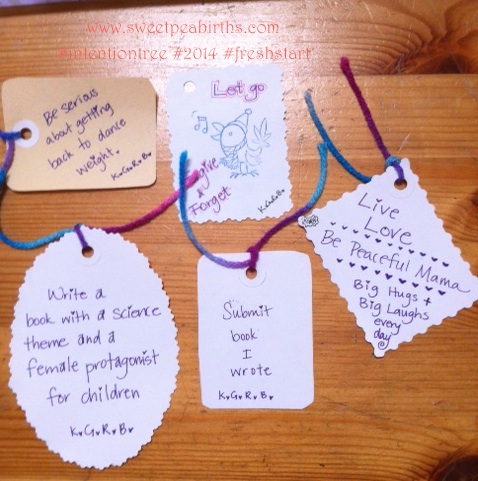 www.sweetpeabirths.com
#intentiontree #2014 #freshstart
Be serious
about getting
back to dance
weight.
K.G.R.B.
Let go
give
&
Forget
K.G.R.B.
Live
Love
Be Peaceful Mama
Big Hugs +
Big Laughs
every
day
Write a
book with a science
theme and a
female protagonist
for children
K.G.R.B.
Submit
book
I
wrote
K.G.R.B.